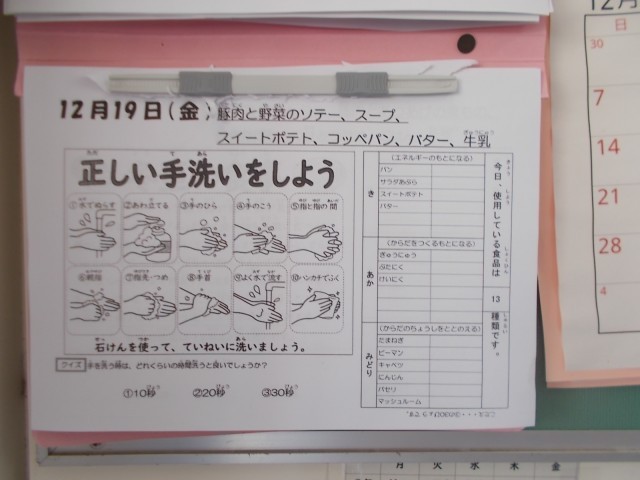 12月19日(金) 豚肉と野菜のソテー、スープ、
スイートポテト、コッペパン、バター、牛乳
正しい手洗いをしよう
①水でぬらす
②あわ立てる
③手のひら
④手のこう
⑤指と指の間
⑥親指
⑦指先・つめ
⑧手首
⑨よく水で流す
⑩ハンカチでふく
石けんを使って、ていねいに洗いましょう。
クイズ 手を洗う時は、どれくらいの時間洗うと良いでしょうか?
①10秒 ②20秒 ③30秒
き
(エネルギーのもとになる)
パン
サラダあぶら
スイートポテト
バター
あか
(からだをつくるもとになる)
ぎゅうにゅう
ぶたにく
けいにく
みどり
(からだのちょうしをととのえる)
たまねぎ
ピーマン
キャベツ
にんじん
パセリ
マッシュルーム
今日、使用している食品は 13 種類です。
12月
日
30
7
14
21
28
4
月 火 水 木 金